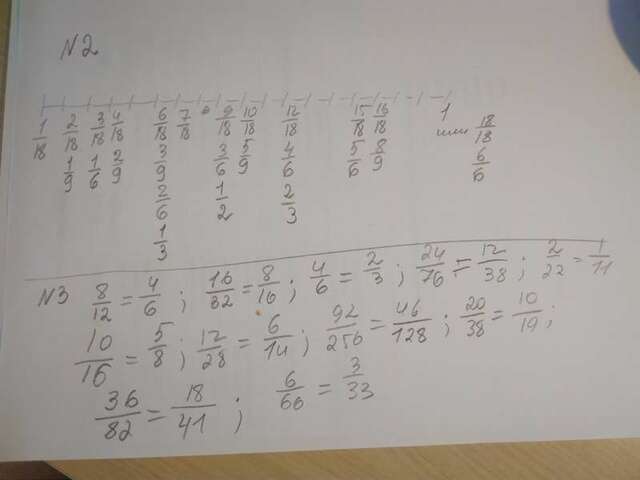 N2
1/18 2/18 3/18 4/18 6/18 7/18 9/18 10/18 12/18 15/18 16/18 1 или 18/18
1/9 1/6 2/9 3/9 3/6 5/9 4/6 5/6 8/9 6/6
2/6 1/2 2/3
1/3
N3 8/12 = 4/6 ; 16/32 = 8/16 ; 4/6 = 2/3 ; 24/76 = 12/38 ; 2/22 = 1/11
10/16 = 5/8 ; 12/28 = 6/14 ; 92/256 = 46/128 ; 20/38 = 10/19 ;
36/82 = 18/41 ; 6/66 = 3/33